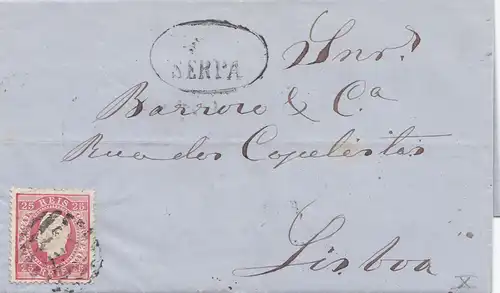 SERPA
Snr.
Barroso & Ca
Rua dos Capelistas
Lisboa
25 REIS 25
x